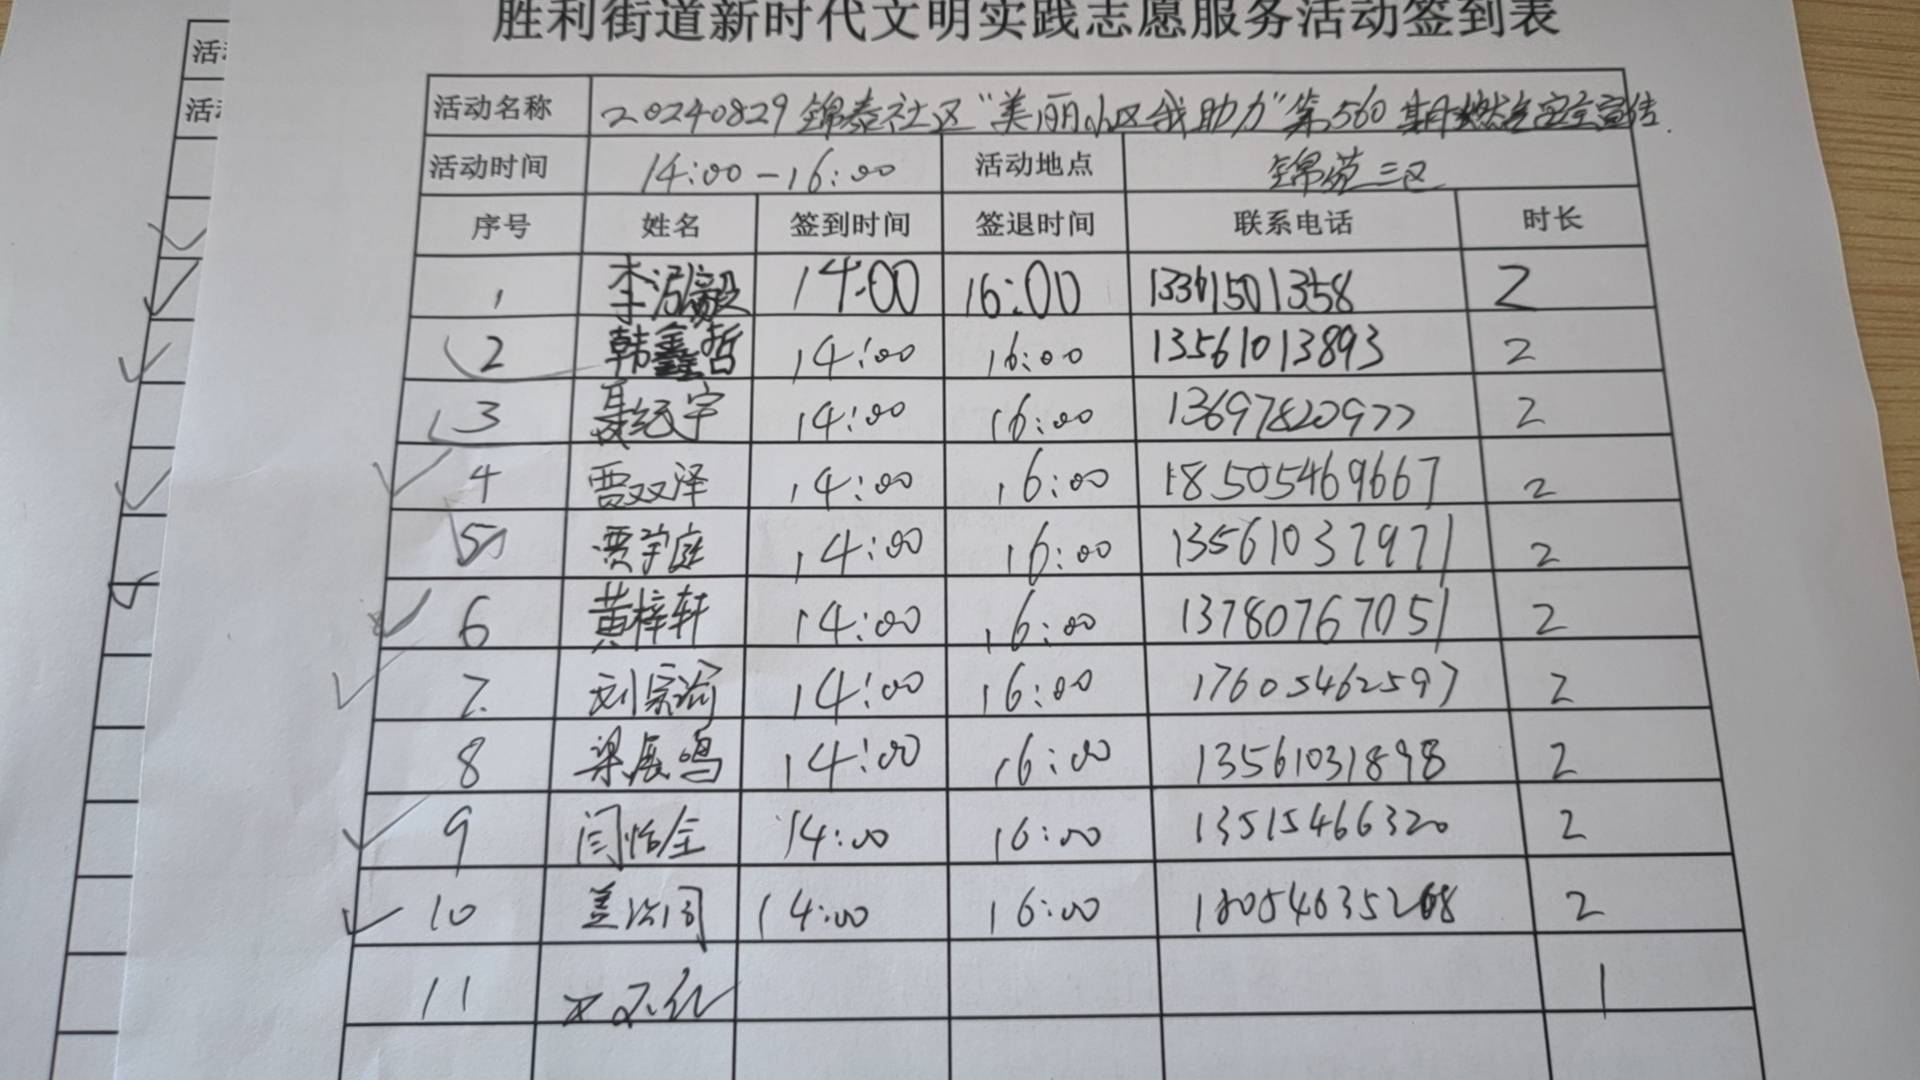 胜利街道新时代文明实践志愿服务活动签到表
活动名称 20240829锦泰社区“美丽小区我助力”第560期燃气安全宣传
活动时间 14:00-16:00 活动地点 锦苑三区
序号 姓名 签到时间 签退时间 联系电话 时长
1 李泓毅 14:00 16:00 13361501358 2
2 韩鑫哲 14:00 16:00 13561013893 2
3 聂纭宇 14:00 16:00 13697820977 2
4 贾双泽 14:00 16:00 18505469667 2
5 贾宇庭 14:00 16:00 13561037971 2
6 黄梓轩 14:00 16:00 13780767051 2
7 刘宗渝 14:00 16:00 17605462597 2
8 梁展鸣 14:00 16:00 13561031898 2
9 闫怡全 14:00 16:00 13515466320 2
10 14:00 16:00 18054635268 2
11 1